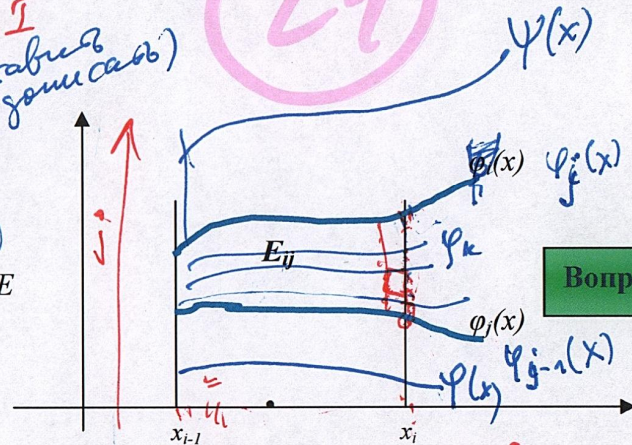 I
авить
дописать)
24
ψ(x)
φᵢ(x) φⱼ(x)
j
E
Eᵢⱼ
φₖ
Вопр
φⱼ(x)
φⱼ₋₁(x)
φ(x)
xᵢ₋₁
xᵢ